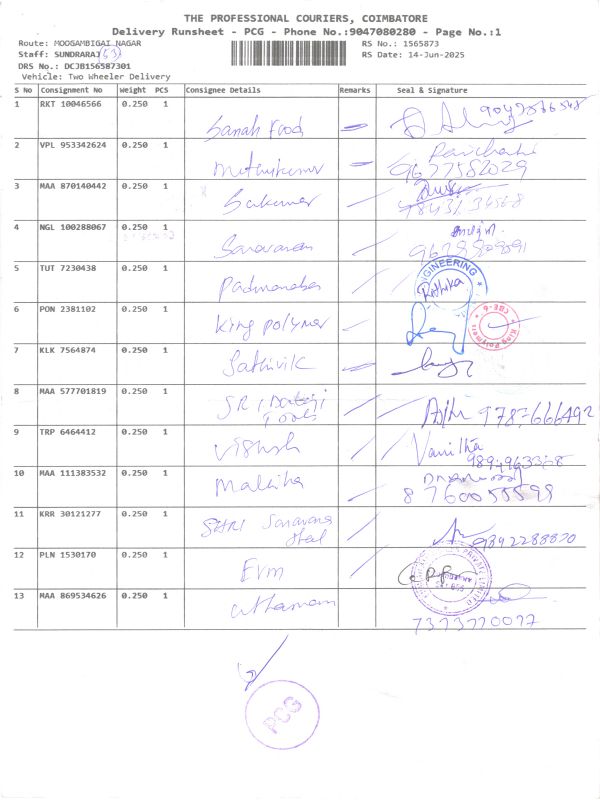 THE PROFESSIONAL COURIERS, COIMBATORE
Delivery Runsheet - PCG - Phone No.:9047080280 - Page No.:1
Route: MOOGAMBIGAI NAGAR
RS No.: 1565873
Staff: SUNDRARAJ (53)
RS Date: 14-Jun-2025
DRS No.: DCJB156587301
Vehicle: Two Wheeler Delivery
S No Consignment No Weight PCS Consignee Details Remarks Seal & Signature
1 RKT 10046566 0.250 1 Sanah Food
2 VPL 953342624 0.250 1 Muthukumar 9677582029
3 MAA 870140442 0.250 1 Saikumar
4 NGL 100288067 0.250 1 Saravanan
5 TUT 7230438 0.250 1 Padmanaban ENGINEERING Rithika
6 PON 2381102 0.250 1 King polymer King Polymers CBE-6
7 KLK 7564874 0.250 1 Sathivik
8 MAA 577701819 0.250 1 SRI Balaji Tools 9787666492
9 TRP 6464412 0.250 1 Vignesh Vanitha
10 MAA 111383532 0.250 1 Mallika 8760055599
11 KRR 30121277 0.250 1 SHRI Saravana Steel 9892288820
12 PLN 1530170 0.250 1 Evm PRIVATE LIMITED
13 MAA 869534626 0.250 1 Uthamam
7373770077
PCG